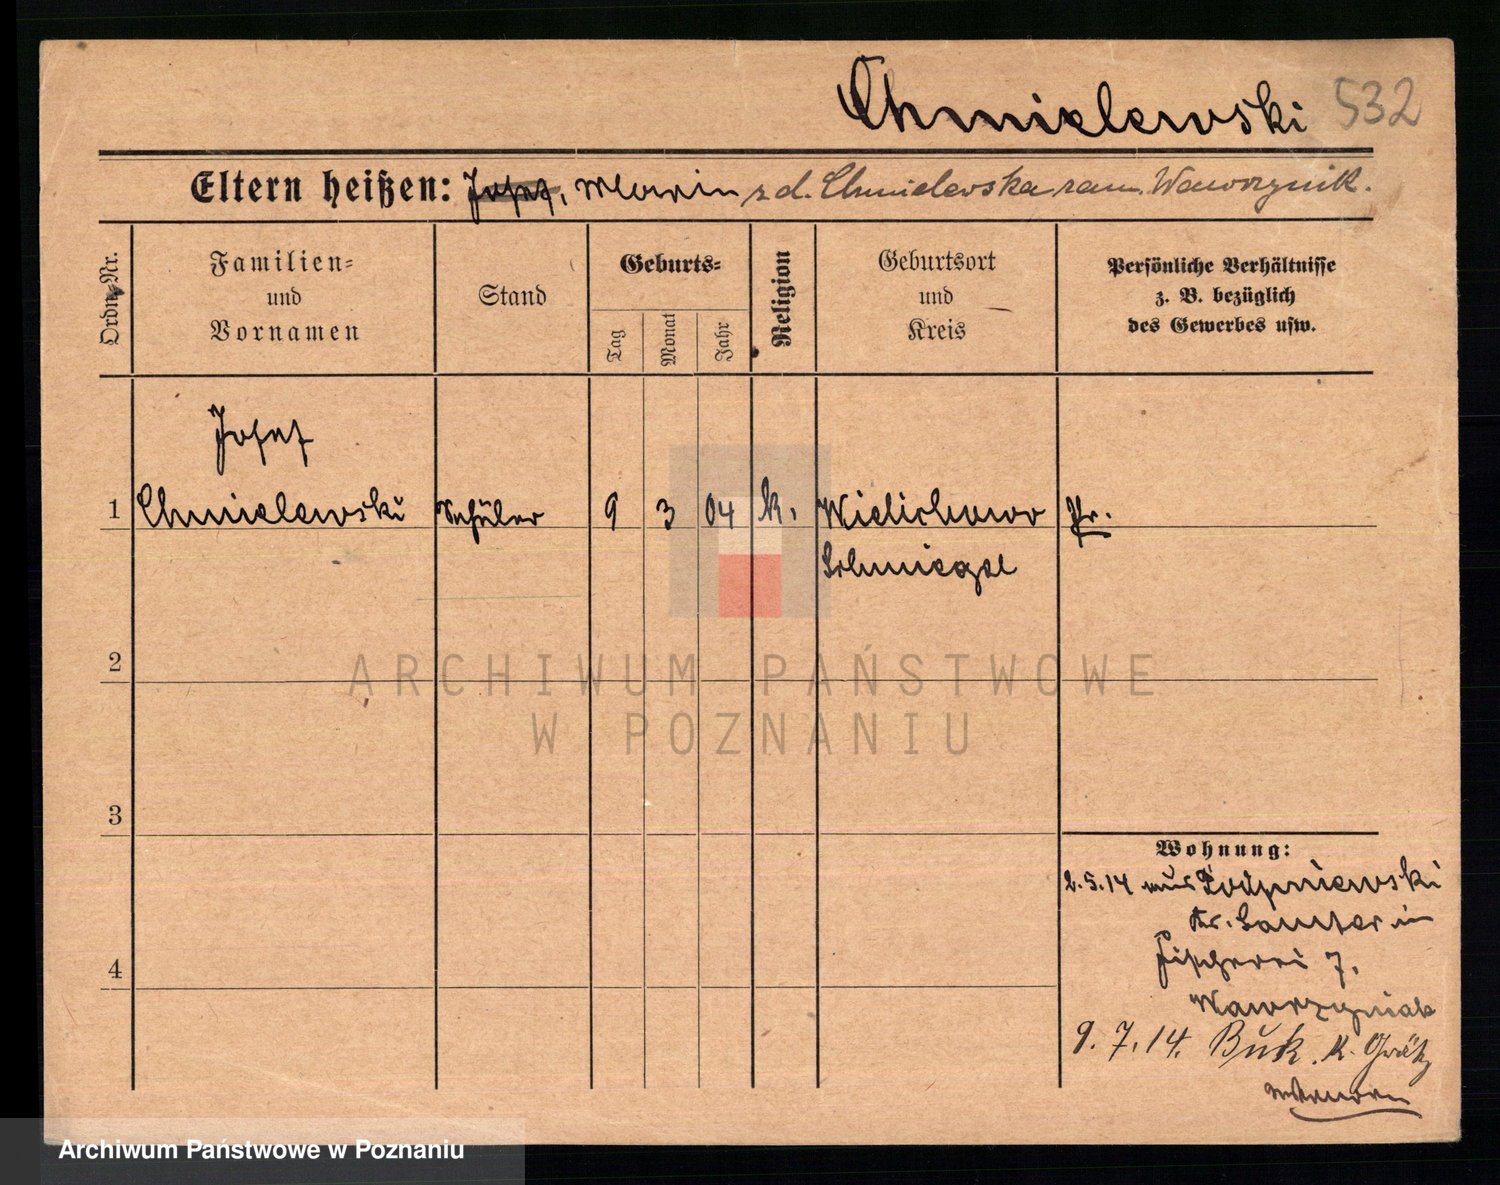 Chmielewski 532
Eltern heißen: Josef, Maria z d. Chmielewska zam. Wawrzyniak.
Ordn.-Nr.
Familien-
und
Vornamen
Stand
Geburts-
Tag
Monat
Jahr
Religion
Geburtsort
und
Kreis
Persönliche Verhältnisse
z. B. bezüglich
des Gewerbes usw.
Josef
1 Chmielewski Schüler 9 3 04 k. Wielichowo Pr.
Schmiegel
2
3
4
Wohnung:
2.5.14 aus
Kr. Samter in
Fischerei 7.
Wawrzyniak
9. 7. 14. Buk. K. Grätz
ARCHIWUM PAŃSTWOWE
W POZNANIU
Archiwum Państwowe w Poznaniu